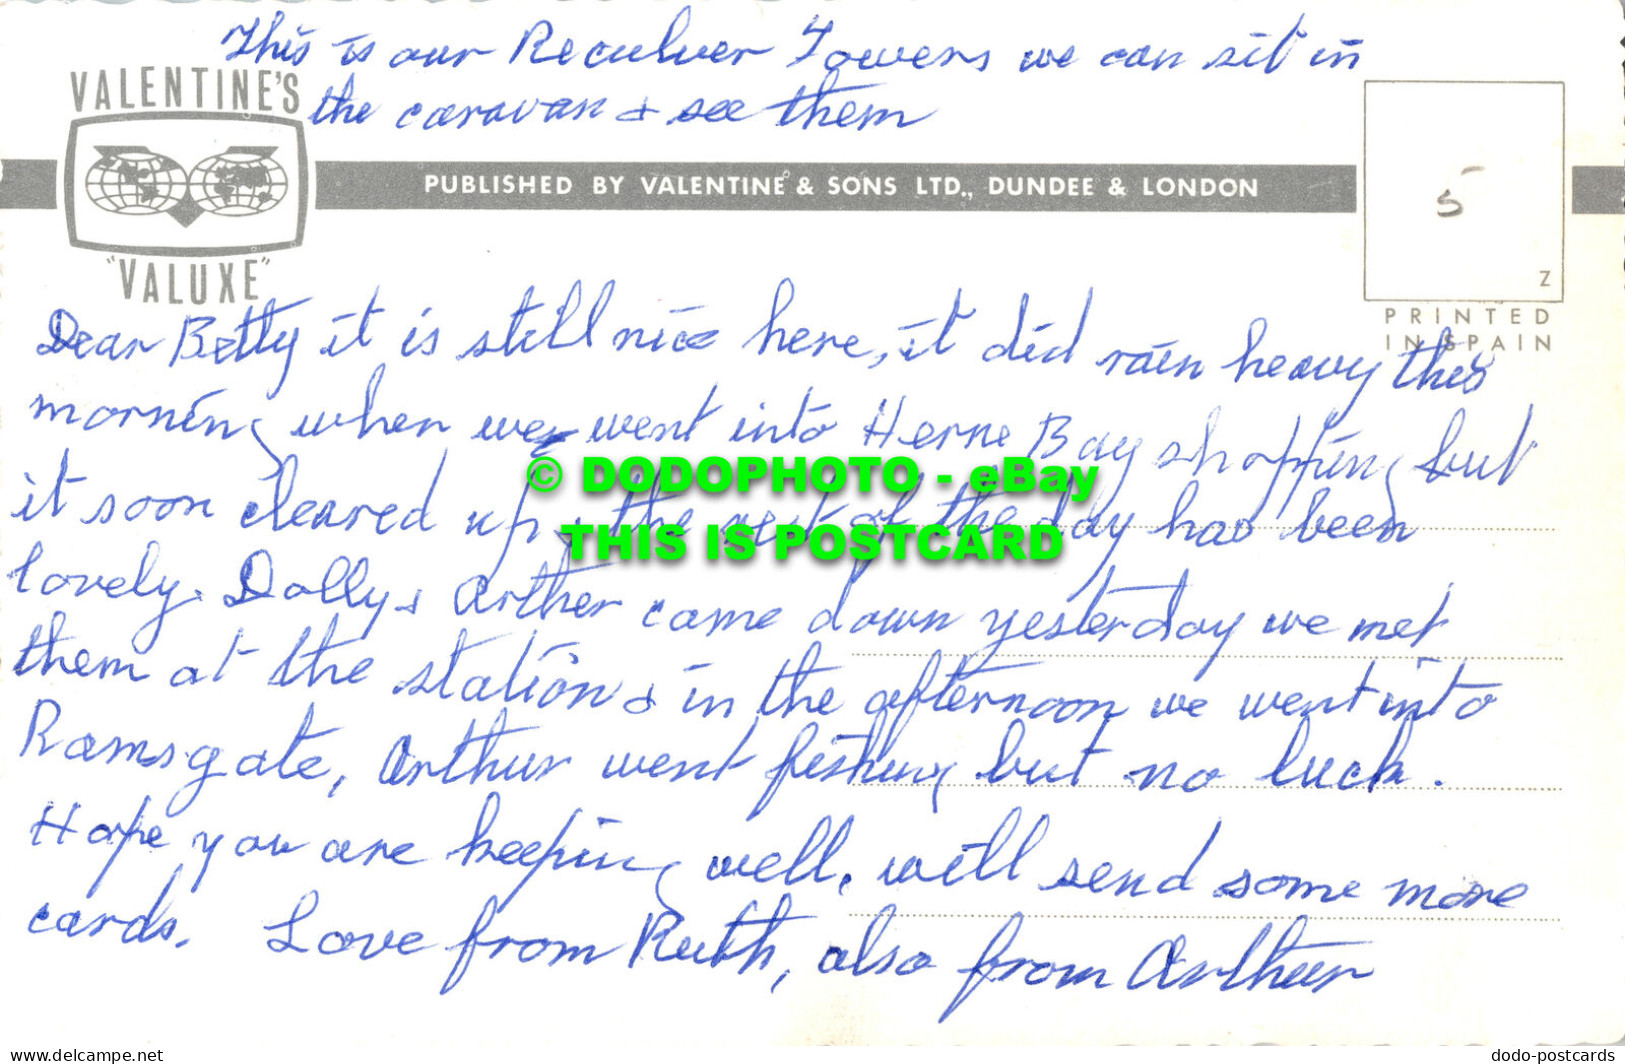 This is our Reculver Towers we can sit in
the caravan & see them
VALENTINE'S
"VALUXE"
PUBLISHED BY VALENTINE & SONS LTD., DUNDEE & LONDON
5
Z
PRINTED
IN SPAIN
Dear Betty it is still nice here, it did rain heavy this
morning when we went into Herne Bay shopping but
it soon cleared up & the rest of the day has been
lovely. Dolly & Arther came down yesterday we met
them at the station & in the afternoon we went into
Ramsgate, Arthur went fishing but no luck.
Hope you are keeping well, will send some more
cards. Love from Ruth, also from Arthur
© DODOPHOTO - eBay
THIS IS POSTCARD
www.delcampe.net
dodo-postcards